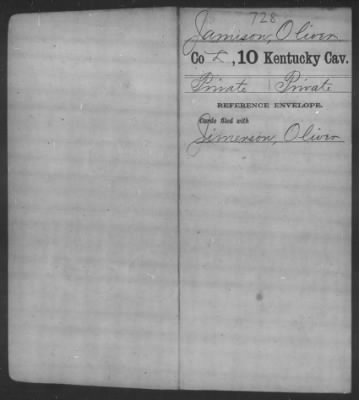 728
Jamison, Oliver
Co L, 10 Kentucky Cav.
Private | Private
REFERENCE ENVELOPE.
Cards filed with
Jimerson, Oliver